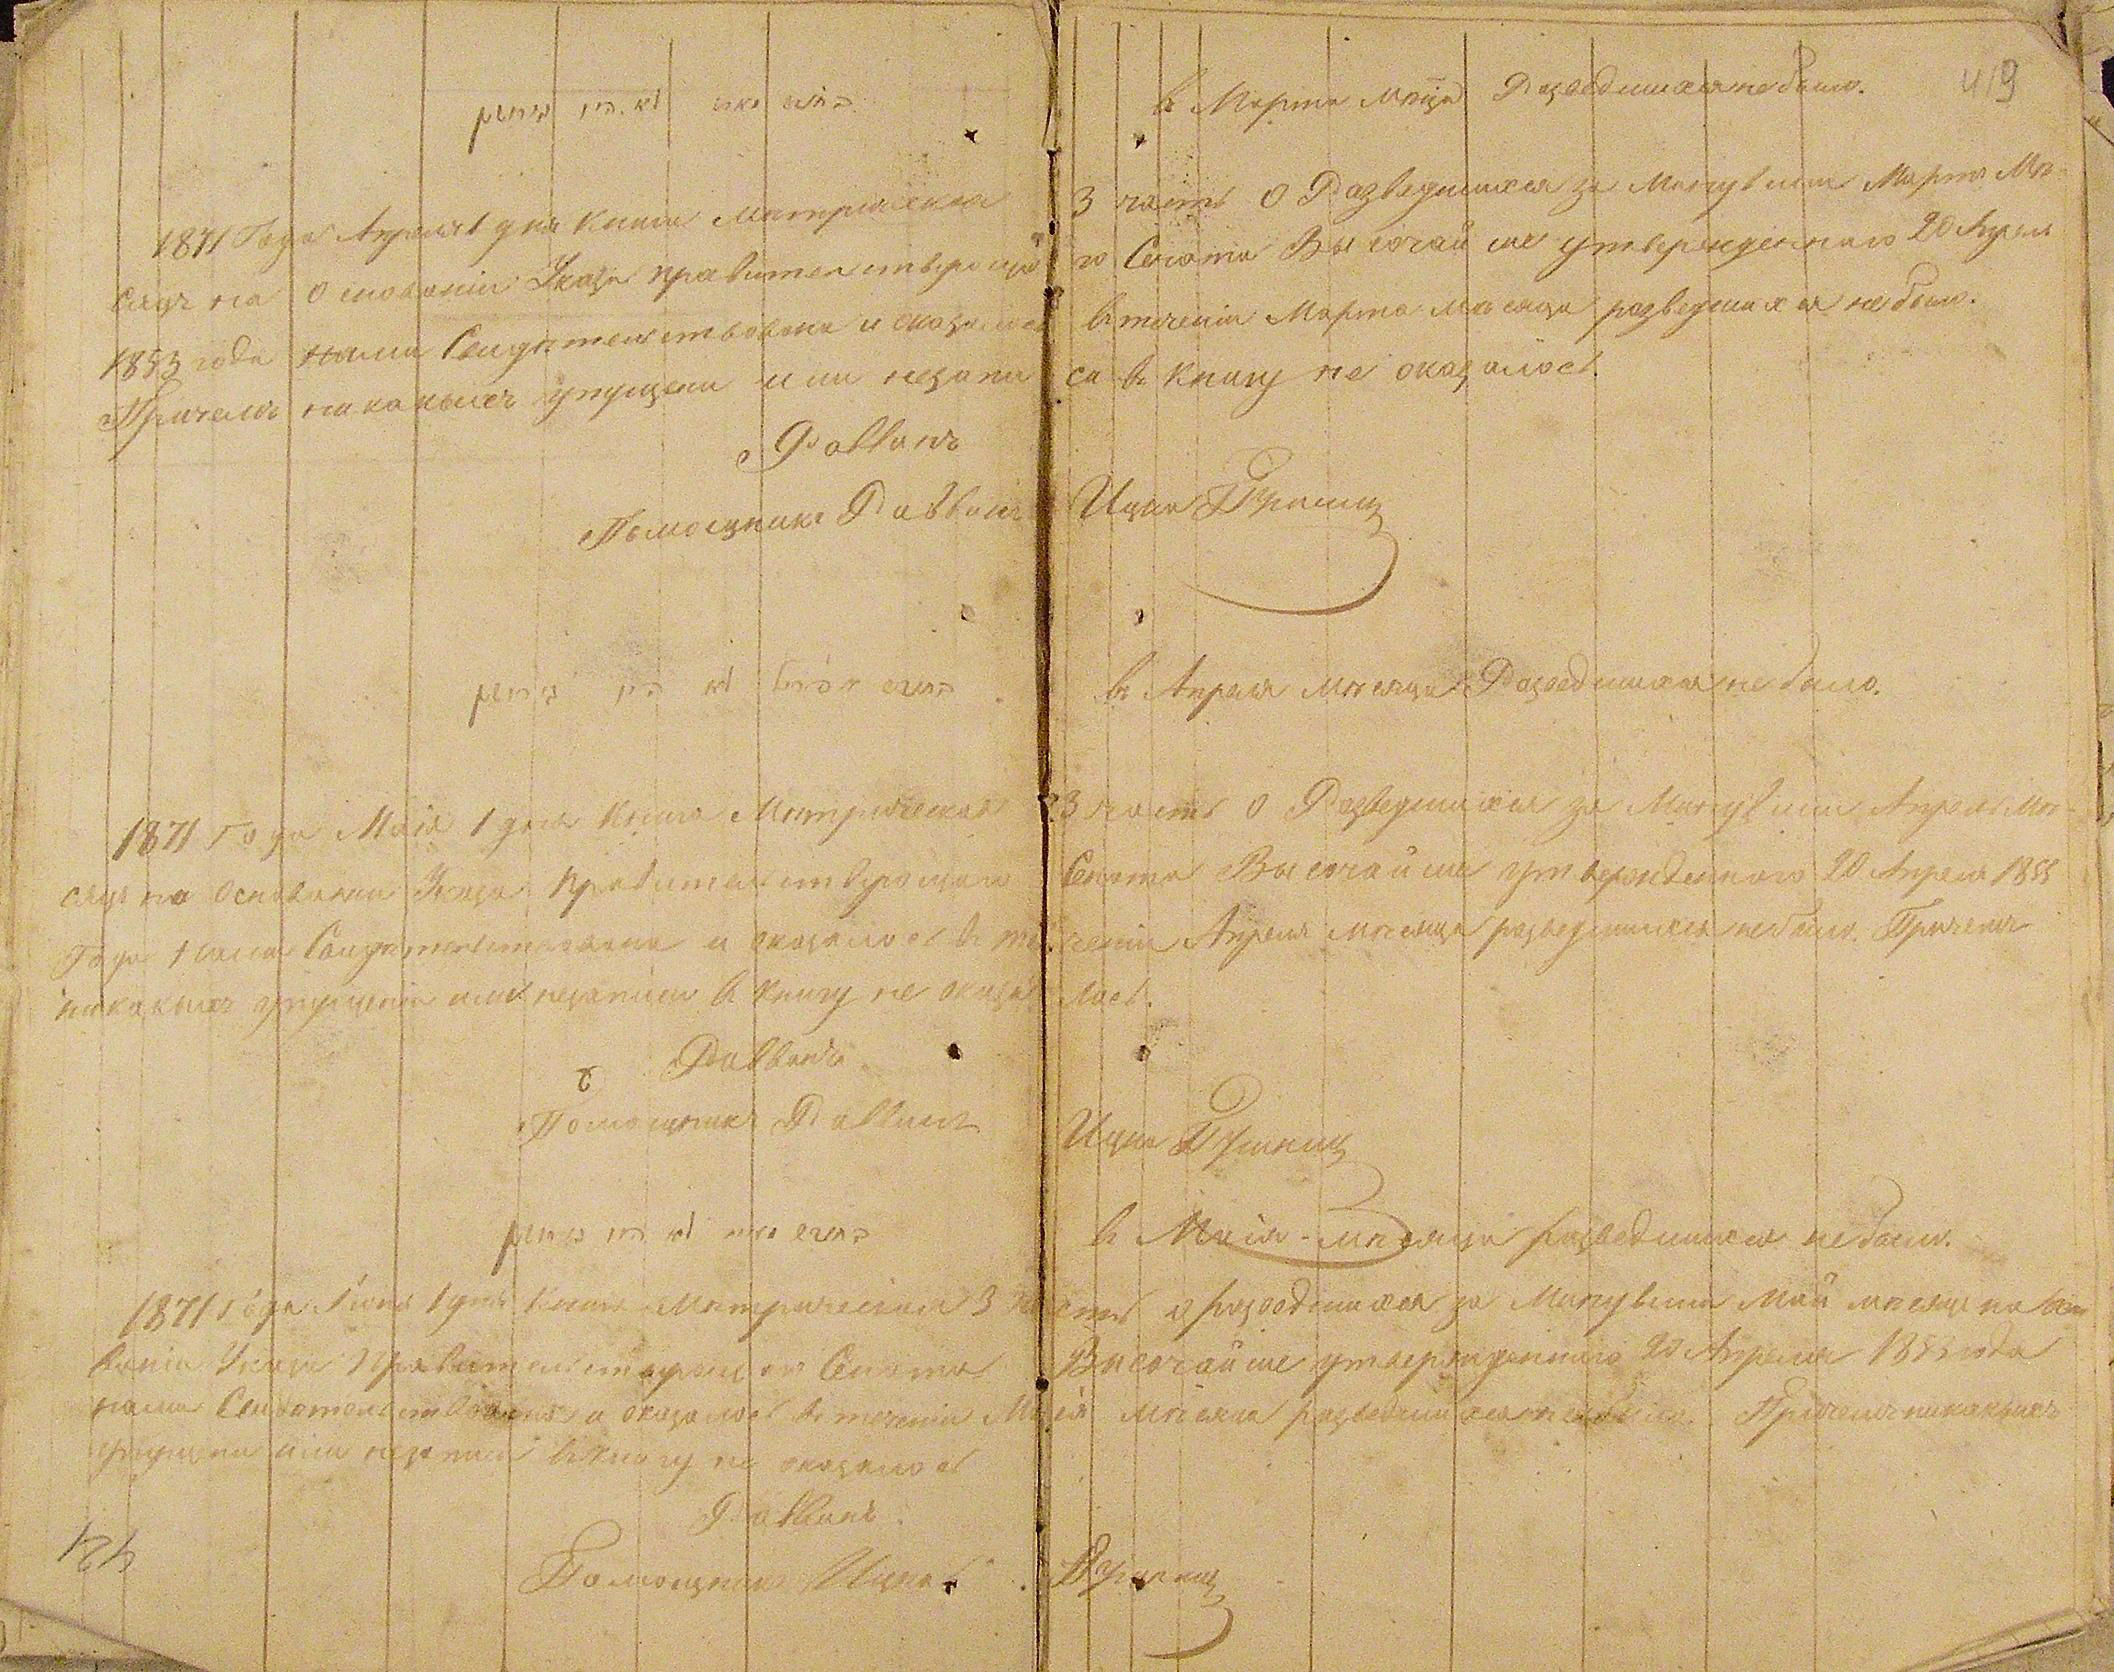 בחודש מארט לא היו גירושין
в Марта мпца Розведшихся небыло.
419
1871 Года Апреля 1 дня Книга Метрическая 3 часть О Разведшихся за Минувший Март Мѣ-
сяцъ на Основаніи Указа правительствующаго Сената Высочайше утвержденнаго 20 Апреля
1853 года нами Свидѣтельствована и оказалось в теченіи Марта мѣсяца разведшихся небыло.
Причемъ никакыхъ упущени или незаписа в книгу не оказалось.
Раввинъ
Помощникъ Раввина Ицко
בחודש אפריל לא היו גירושין
в Апреля мѣсяца Розведшихся небыло.
1871 Года Маія 1 дня Книга Метрическая 3 часть О Разведшихся за Минувший Апрель Мѣ-
сяцъ на Основании Указа Правительствующаго Сената Высочайше утвержденнаго 20 Апреля 1853
Года Нами Свидѣтельствована и оказалось в теченіи Апреля мѣсяца разведшихся небыло. Причемъ
никакыхъ упущеніи или незаписи в книгу не оказалось.
Раввинъ
Помощникъ Раввина Ицко
בחודש מאי לא היו גירושין
в Маія - мѣсяца розведшихся небыло.
1871 Года Іюня 1 дня Книга Метрическая 3 часть о розведшихся за Минувший Май мѣсяцъ на Осно
ваніи Указа Правительствующаго Сената Высочайше утвержденнаго 20 Апреля 1853 года
нами Свидетельствована и оказалось в теченіи Маія мѣсяца разведшихся небыло. Причемъ никакыхъ
упущени или незаписи в книгу не оказалось
Раввинъ.
Помощникъ Ицко
421